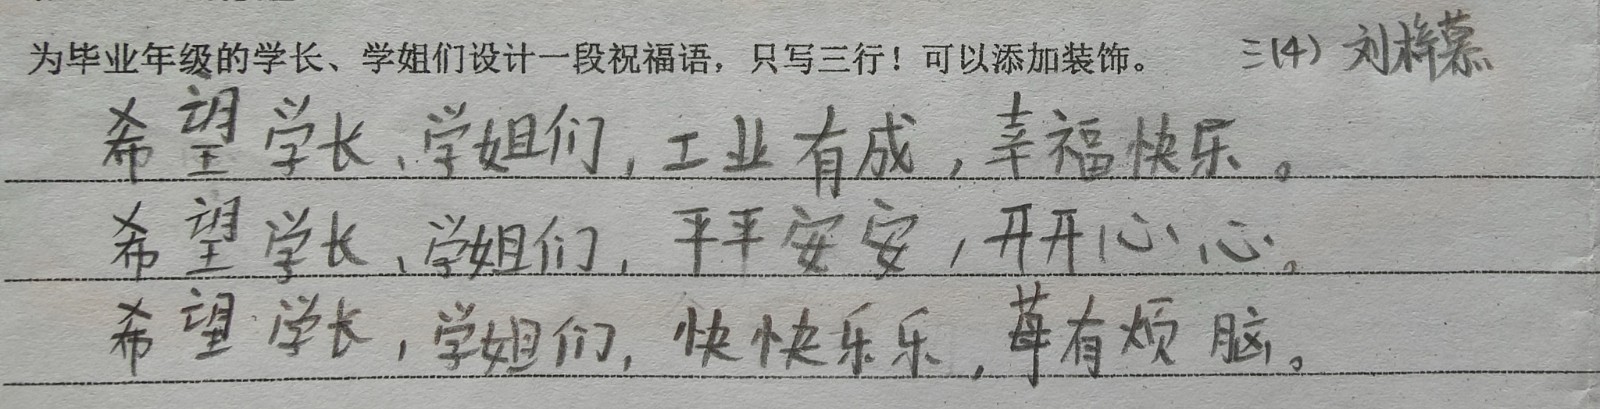 为毕业年级的学长、学姐们设计一段祝福语，只写三行！可以添加装饰。 三(4) 刘梓慕
希望学长、学姐们，工业有成，幸福快乐。
希望学长、学姐们，平平安安，开开心心。
希望学长，学姐们，快快乐乐，莓有烦脑。